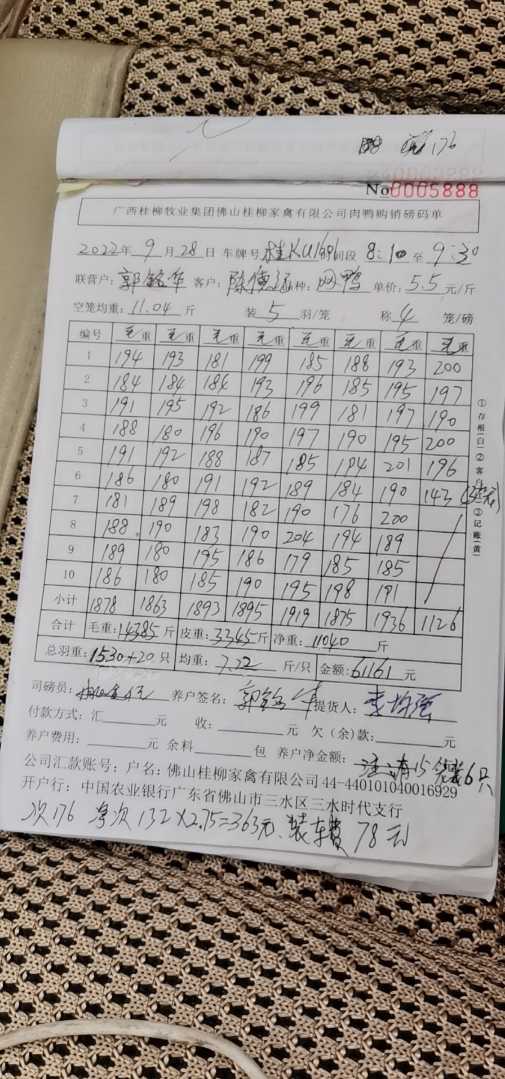 176
No 0005888
广西桂柳牧业集团佛山桂柳家禽有限公司肉鸭购销磅码单
2022年 9 月 28 日 车牌号 桂KU1691 时间段 8:10 至 9:30
联营户: 郭铭华 客户: 陈 种: 肉鸭 单价: 5.5 元/斤
空笼均重: 11.04 斤 装 5 羽/笼 称 4 笼/磅
编号 毛重 毛重 毛重 毛重 毛重 毛重 毛重 毛重
1 194 193 181 199 185 188 193 200
2 184 184 184 193 196 185 195 197
3 191 195 192 186 199 181 197 190
4 188 180 196 190 197 190 195 200
5 191 192 188 187 185 194 201 196
6 186 180 191 192 189 184 190 143
7 181 189 198 182 190 176 200
8 188 190 183 190 204 194 189
9 189 180 195 186 179 185 185
10 186 180 185 190 195 198 191
小计 1878 1863 1893 1895 1919 1875 1936 1126
合计 毛重: 14385 斤 皮重: 3345 斤 净重: 11040 斤
总羽重: 1530+20 只 均重: 7.22 斤/只 金额: 61161 元
司磅员: 养户签名: 郭铭华 提货人:
付款方式: 汇 元 收: 元 欠(余)款: 元
养户费用: 元 余料 包 养户净金额: 15 6只
公司汇款账号: 户名: 佛山桂柳家禽有限公司 44-440101040016929
开户行: 中国农业银行广东省佛山市三水区三水时代支行
次176 单次 132×2.75=363元. 装车费 78元
①存根(白)②客 ③记账(黄)